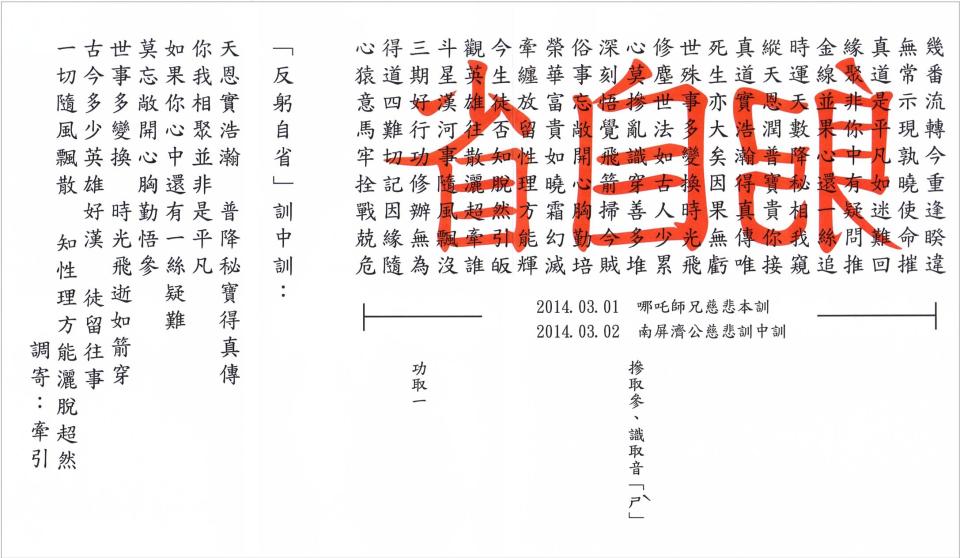 幾番流轉今重逢睽違
無常示現孰曉使命摧
真道是平凡如迷難回
緣聚非你中有疑問推
金線並果心還一絲追
時運天數降秘相我窺
縱天恩潤普寶貴你接
真道實浩瀚得真傳唯
死生亦大矣因果無虧
世殊事多變換時光飛
修塵世法如古人少累
心莫摻亂識穿善多堆
深刻悟覺飛箭掃今賊
俗事忘敞開心胸勤培
榮華富貴如曉霜幻滅
牽纏放留性理方能輝
今生徒否知脫然引皈
觀英雄往散灑超牽誰
斗星漢河事隨風飄沒
三期好行功修辦無為
得道四難切記因緣隨
心猿意馬牢拴戰兢危
自
省
2014.03.01 哪吒師兄慈悲本訓
2014.03.02 南屏濟公慈悲訓中訓
摻取參、識取音「ㄕˋ」
功取一
「反躬自省」訓中訓：
天恩實浩瀚 普降秘寶得真傳
你我相聚並非是平凡
如果你心中還有一絲疑難
莫忘敞開心胸勤悟參
世事多變換 時光飛逝如箭穿
古今多少英雄好漢 徒留往事
一切隨風飄散 知性理方能灑脫超然
調寄：牽引